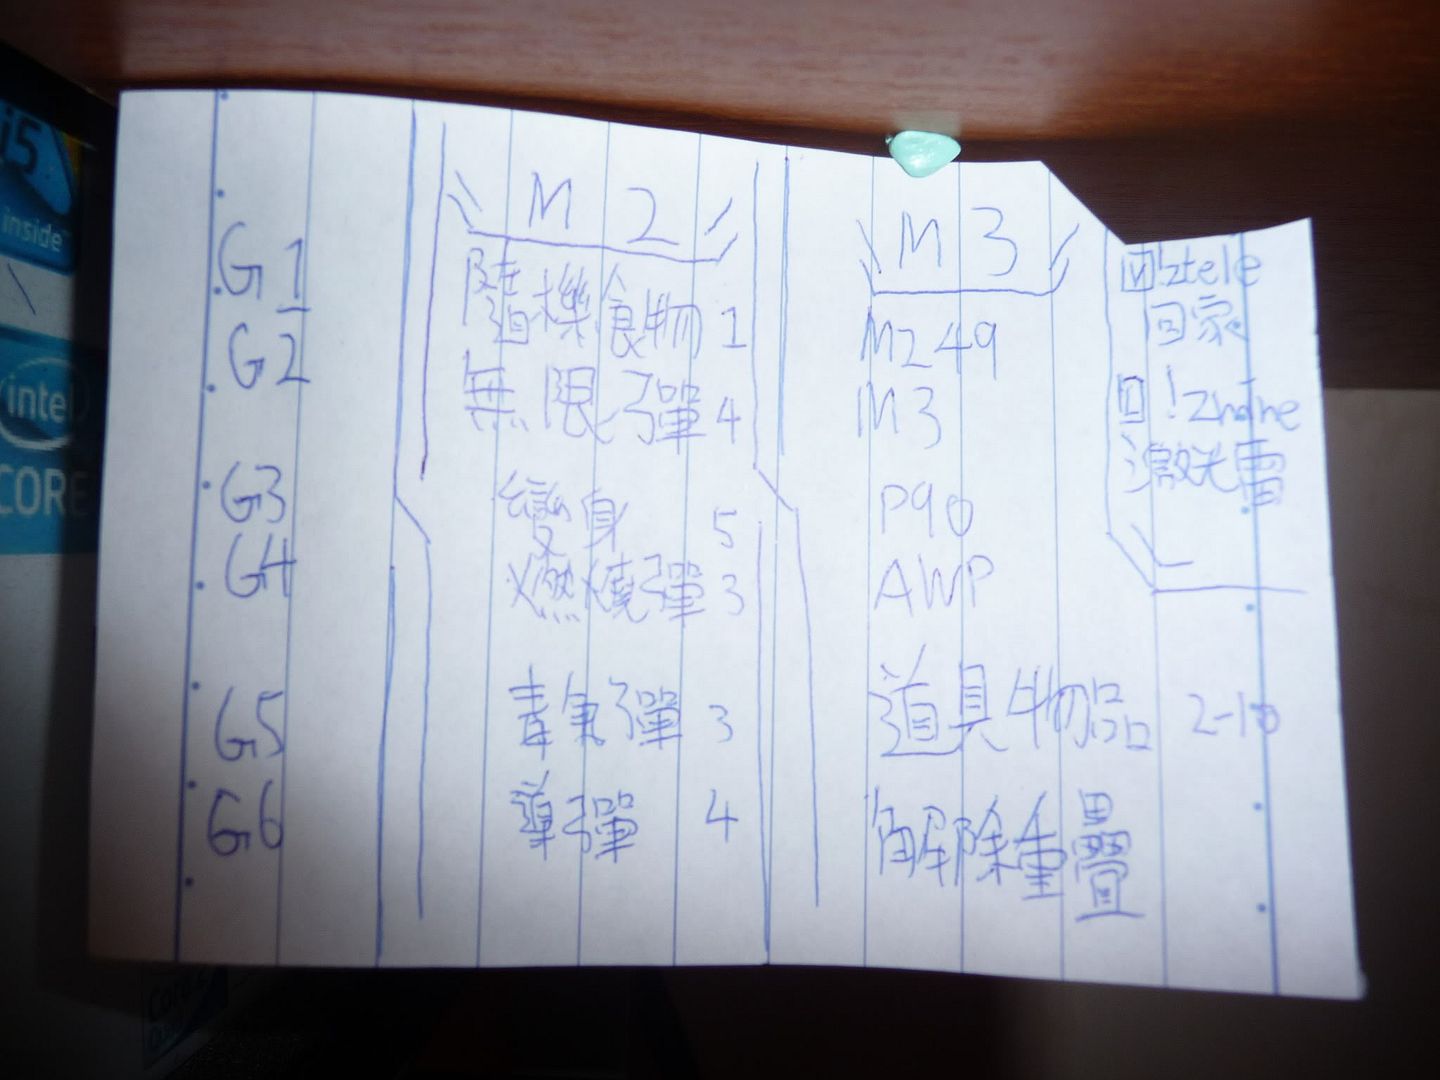 i5
inside
intel
CORE
G1
G2
G3
G4
G5
G6
M2
隨機食物 1
無限彈 4
變身 5
燃燒彈 3
毒氣彈 3
導彈 4
M3
M249
M3
P90
AWP
道具物品 2-10
解除重疊
M !ztele
回家
!zmine
激光雷